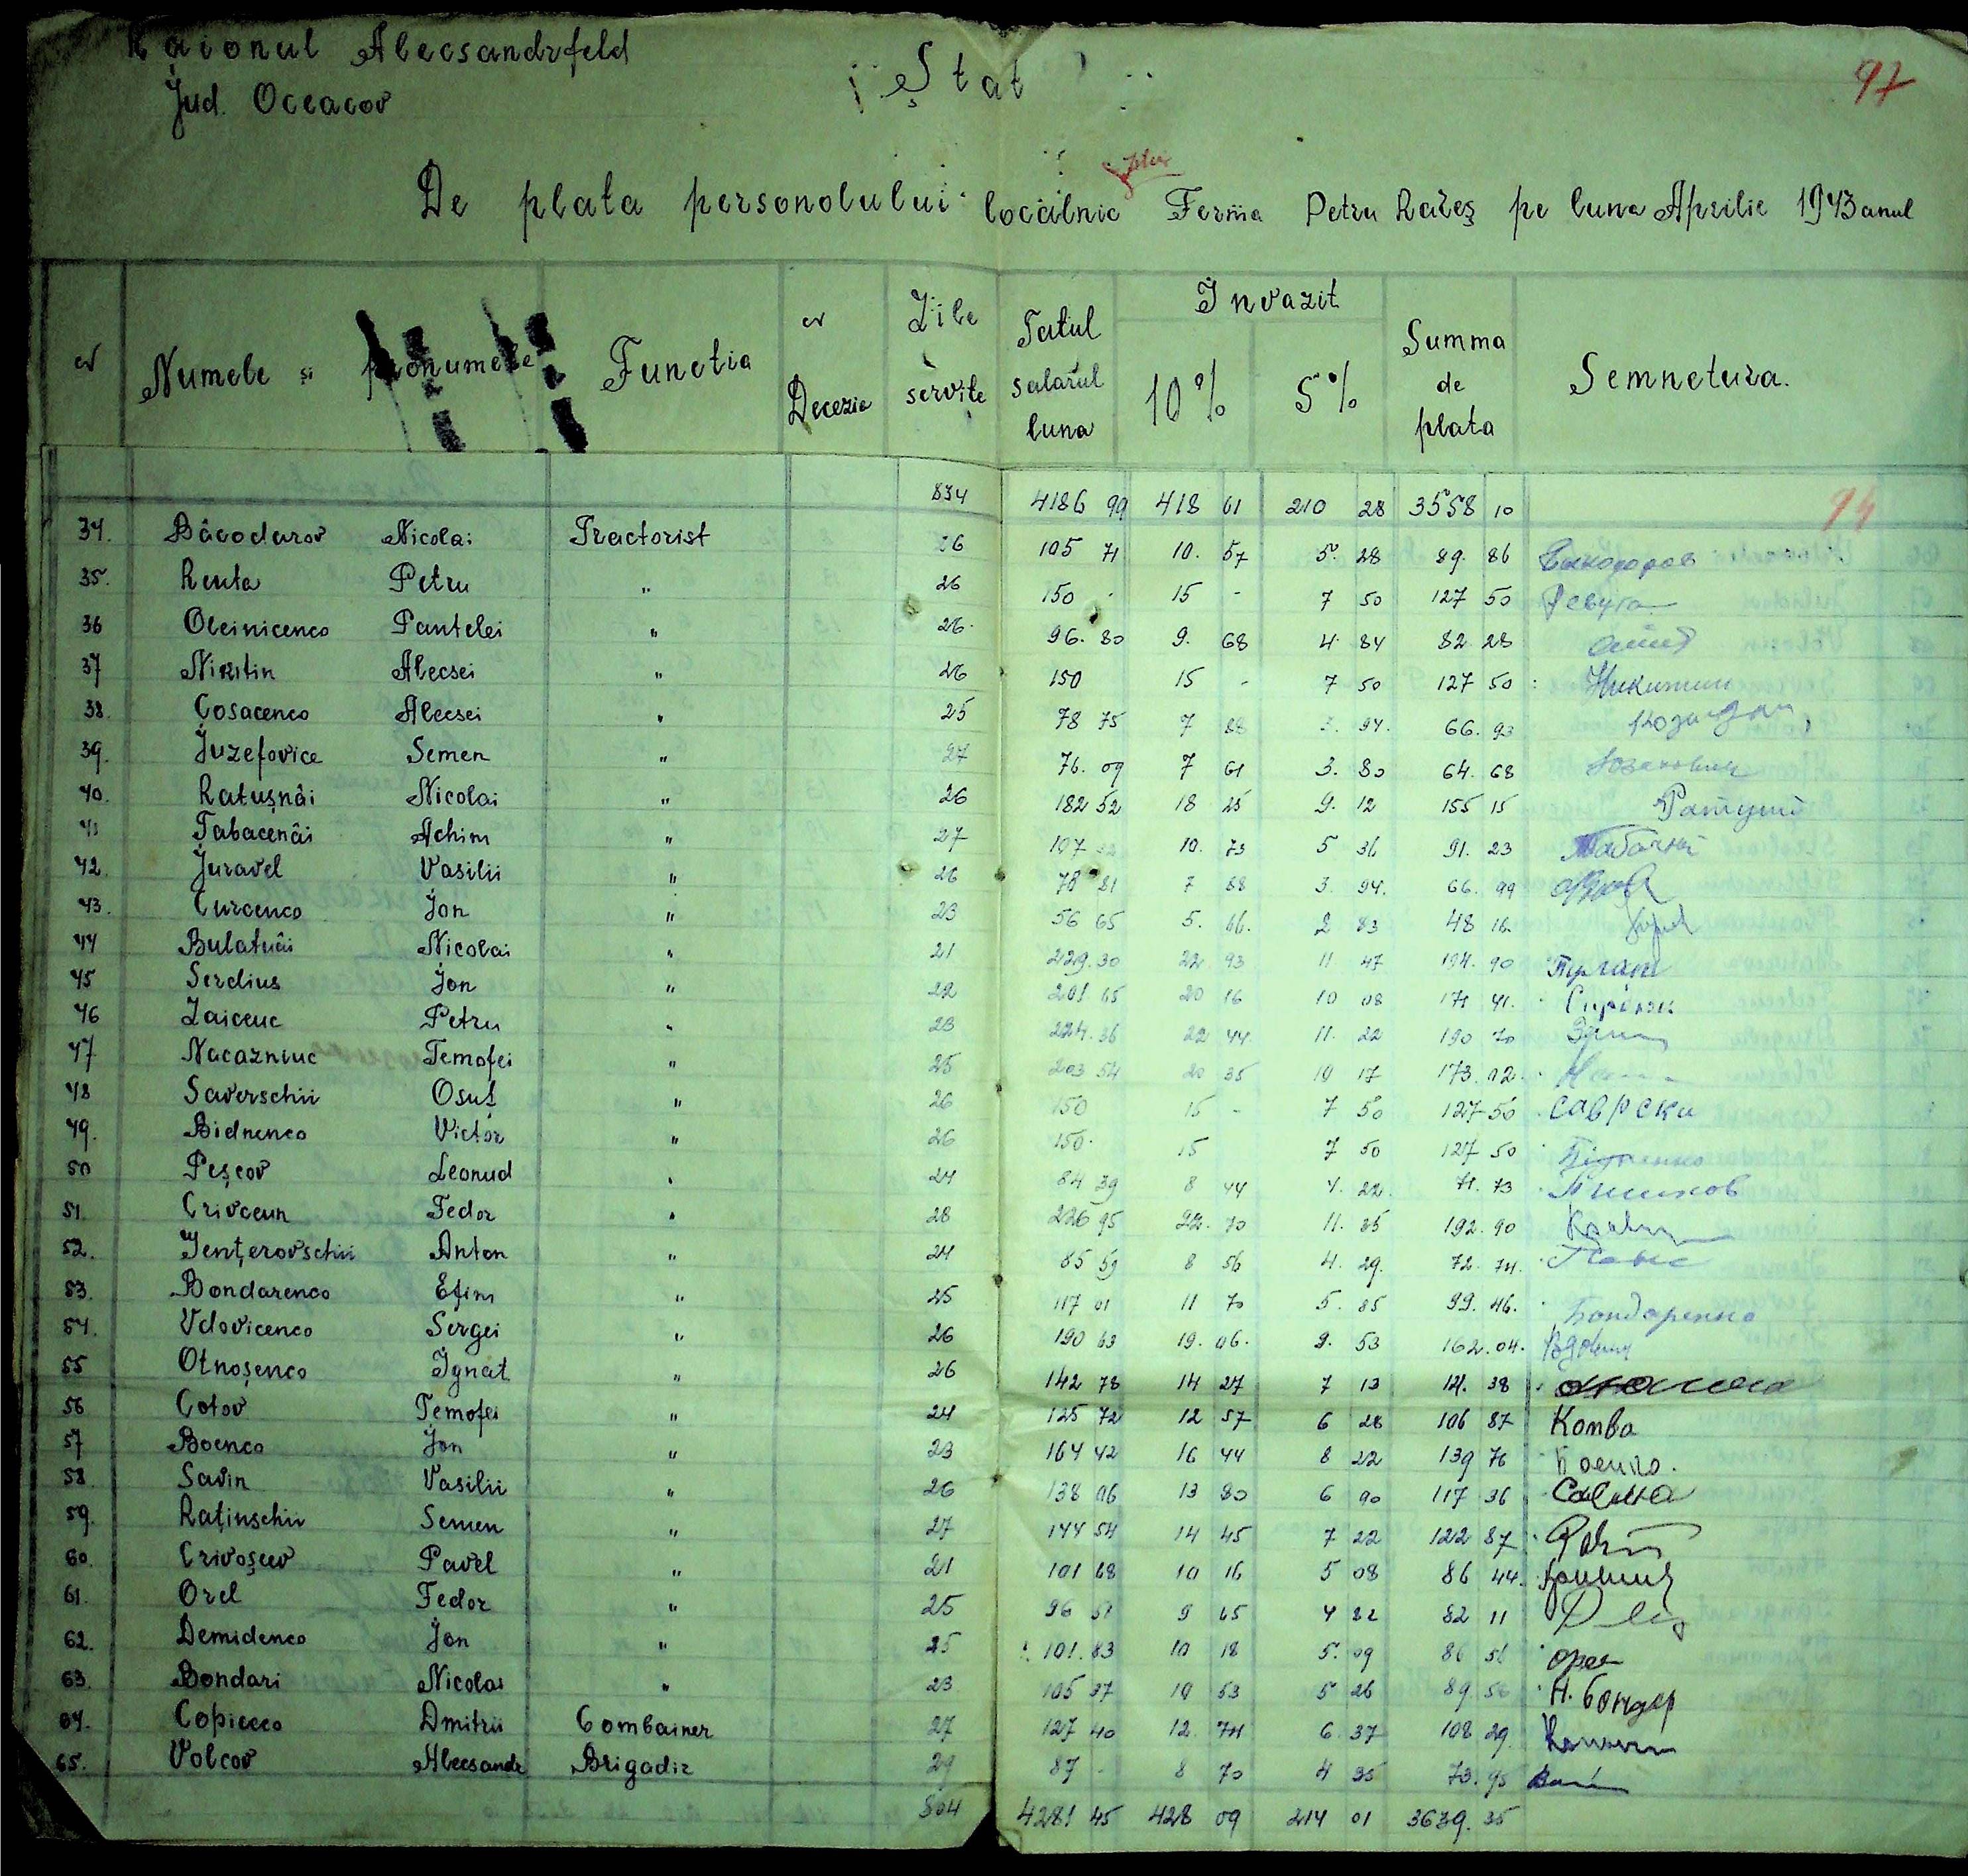 Raionul Alecsandrfeld
Jud. Oceacov
Ștat
97
plus
De plata personolului localnic Ferma Petru Rareș pe luna Aprilie 1943 anul
Numele și pronumele Functia Decezie Zile servite Tatul salarul luna Invazit 10% 5% Summa de plata Semnetura.
834 4186 99 418 61 210 28 3558 10
34. Bâcodurov Nicolai Tractorist 26 105 71 10. 57 5. 28 89. 86
35. Renta Petru " 26 150 - 15 - 7 50 127 50 Ревута
36 Oleinicenco Pantelei " 26. 96. 80 9. 68 4 84 82. 28
37 Nikitin Alecsei " 26 150 15 - 7 50 127 50 Никитин
38. Cosacenco Alecsei " 25 78 75 7 88 3. 94. 66. 93
39. Juzefovice Semen " 27 76. 09 7 61 3. 80 64. 68
40. Ratușnâi Nicolai " 26 182 52 18 25 9. 12 155 15
41 Tabacenâi Achim " 27 107 10. 73 5 36 91. 23
42. Juravel Vasilii " 26 78 81 7 88 3. 94. 66. 99
43. Curcenco Jon " 23 56 65 5. 66. 2 83 48 16.
44 Bulatnâi Nicolai " 21 229. 30 22. 93 11 47 194. 90
45 Serdius Jon " 22 201 65 20 16 10 08 171 41.
46 Zaiceuc Petru " 23 224. 36 22 44 11. 22 190 70
47 Nacazniuc Temofei " 25 203 54 20 35 10 17 173. 02.
48 Saverschii Osuf " 26 150 15 - 7 50 127 50 саврски
49. Bidnenco Victor " 26 150. 15 7 50 127 50 Бідненко
50 Peșcov Leonud " 24 84 39 8 44 4. 22. 71. 73
51. Crivceun Fedor " 28 226 95 22. 70 11. 35 192. 90
52. Jențerovschii Anton " 24 85 59 8 56 4. 29. 72. 74.
53. Bondarenco Efim " 25 117 01 11 70 5. 85 99. 46. Бондаренко
54. Vdovicenco Sergei " 26 190 63 19. 06. 9. 53 162. 04.
55 Otnoșenco Ignat " 26 142 78 14 27 7 13 121. 38
56 Cotov Temofei " 24 125 72 12 57 6 28 106 87 Котва
57 Boenco Jon " 23 164 42 16 44 8 22 139 76 Боенко.
58. Savin Vasilii " 26 138 06 13 80 6 90 117 36 Савина
59. Raținschii Semen " 27 144 54 14 45 7 22 122 87
60. Crivoșeev Pavel " 21 101 68 10 16 5 08 86 44.
61. Orel Fedor " 25 96 51 9 65 4 82 82 11
62. Demidenco Jon " 25 101. 83 10 18 5. 09 86 56 орел
63. Bondari Nicolai " 23 105 37 10 53 5 26 89. 56 Н. Бондар
64. Copicco Dmitrii Combainer 27 127 40 12. 74 6. 37 108 29.
65. Volcov Alecsandr Brigadir 29 87 - 8 70 4 35 73. 95
804 4281 45 428 09 214 01 3639. 35